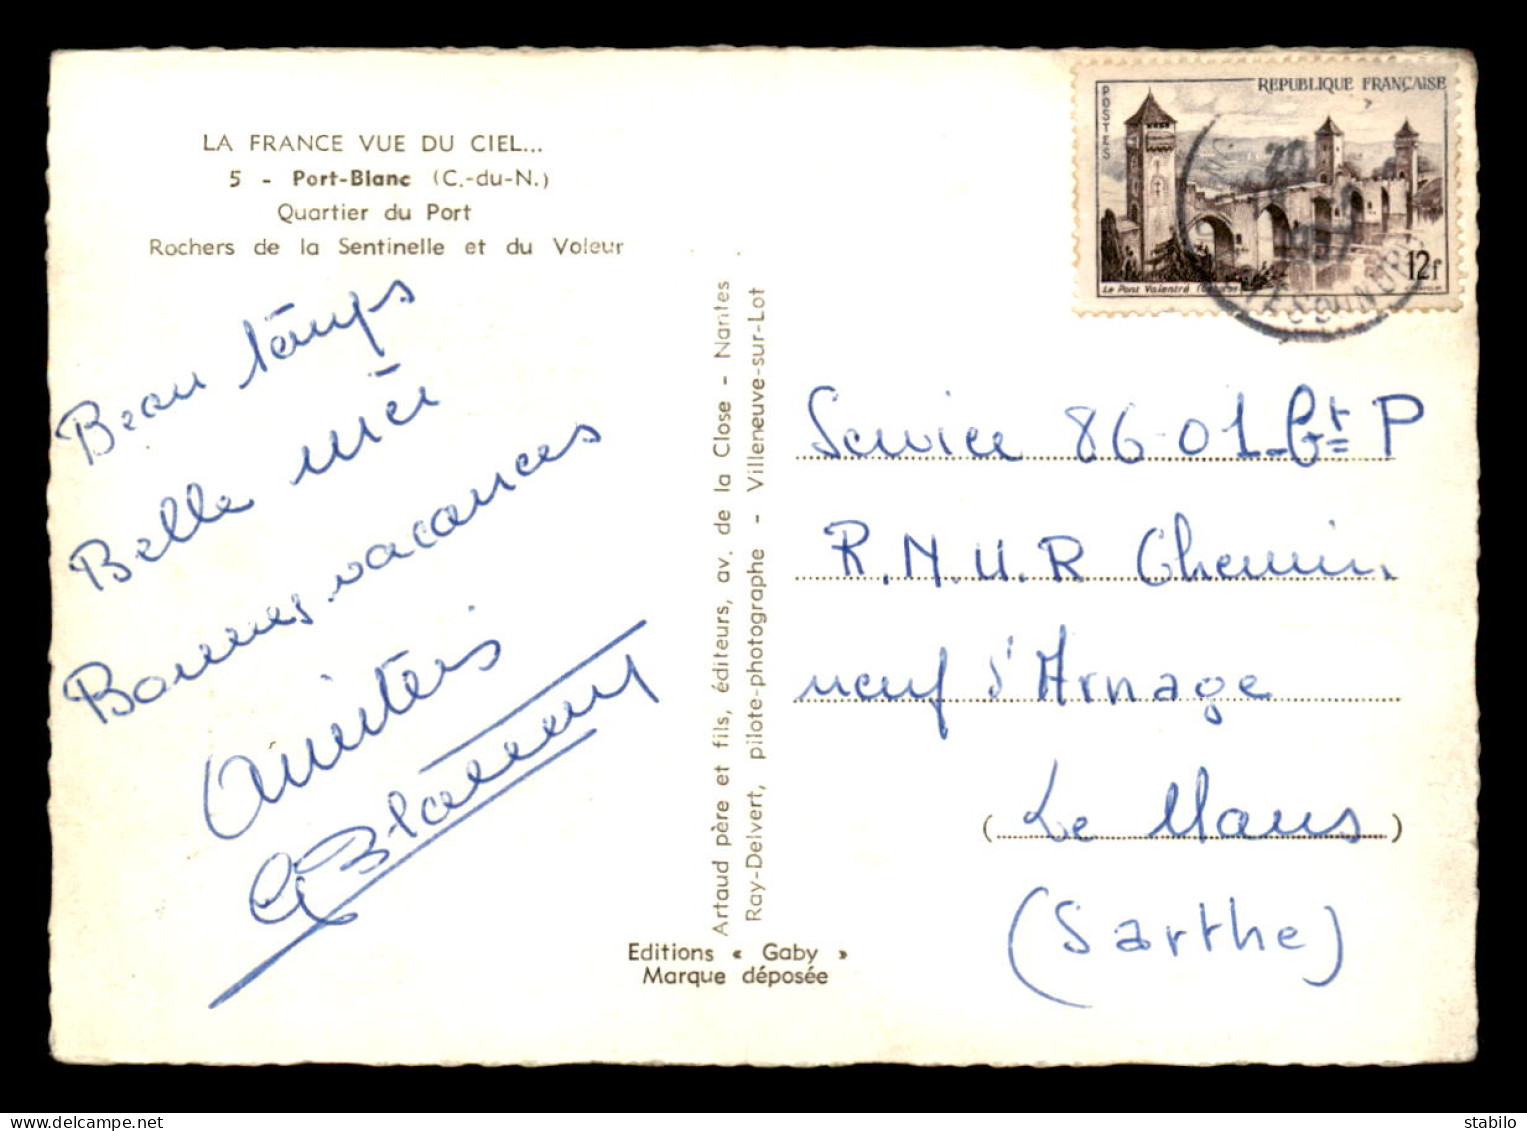 LA FRANCE VUE DU CIEL...
5 - Port-Blanc (C.-du-N.)
Quartier du Port
Rochers de la Sentinelle et du Voleur
Beau temps
Belle mer
Bonnes vacances
Amitiés
Artaud père et fils, éditeurs, av. de la Close - Nantes
Ray-Delvert, pilote-photographe - Villeneuve-sur-Lot
Editions « Gaby »
Marque déposée
REPUBLIQUE FRANÇAISE
POSTES
Le Pont Valentré
12f
CÔTES DU NORD
Service 86-01-Gt P
R.N.U.R Chemin
neuf d'Arnage
(Le Mans)
(Sarthe)
stabilo